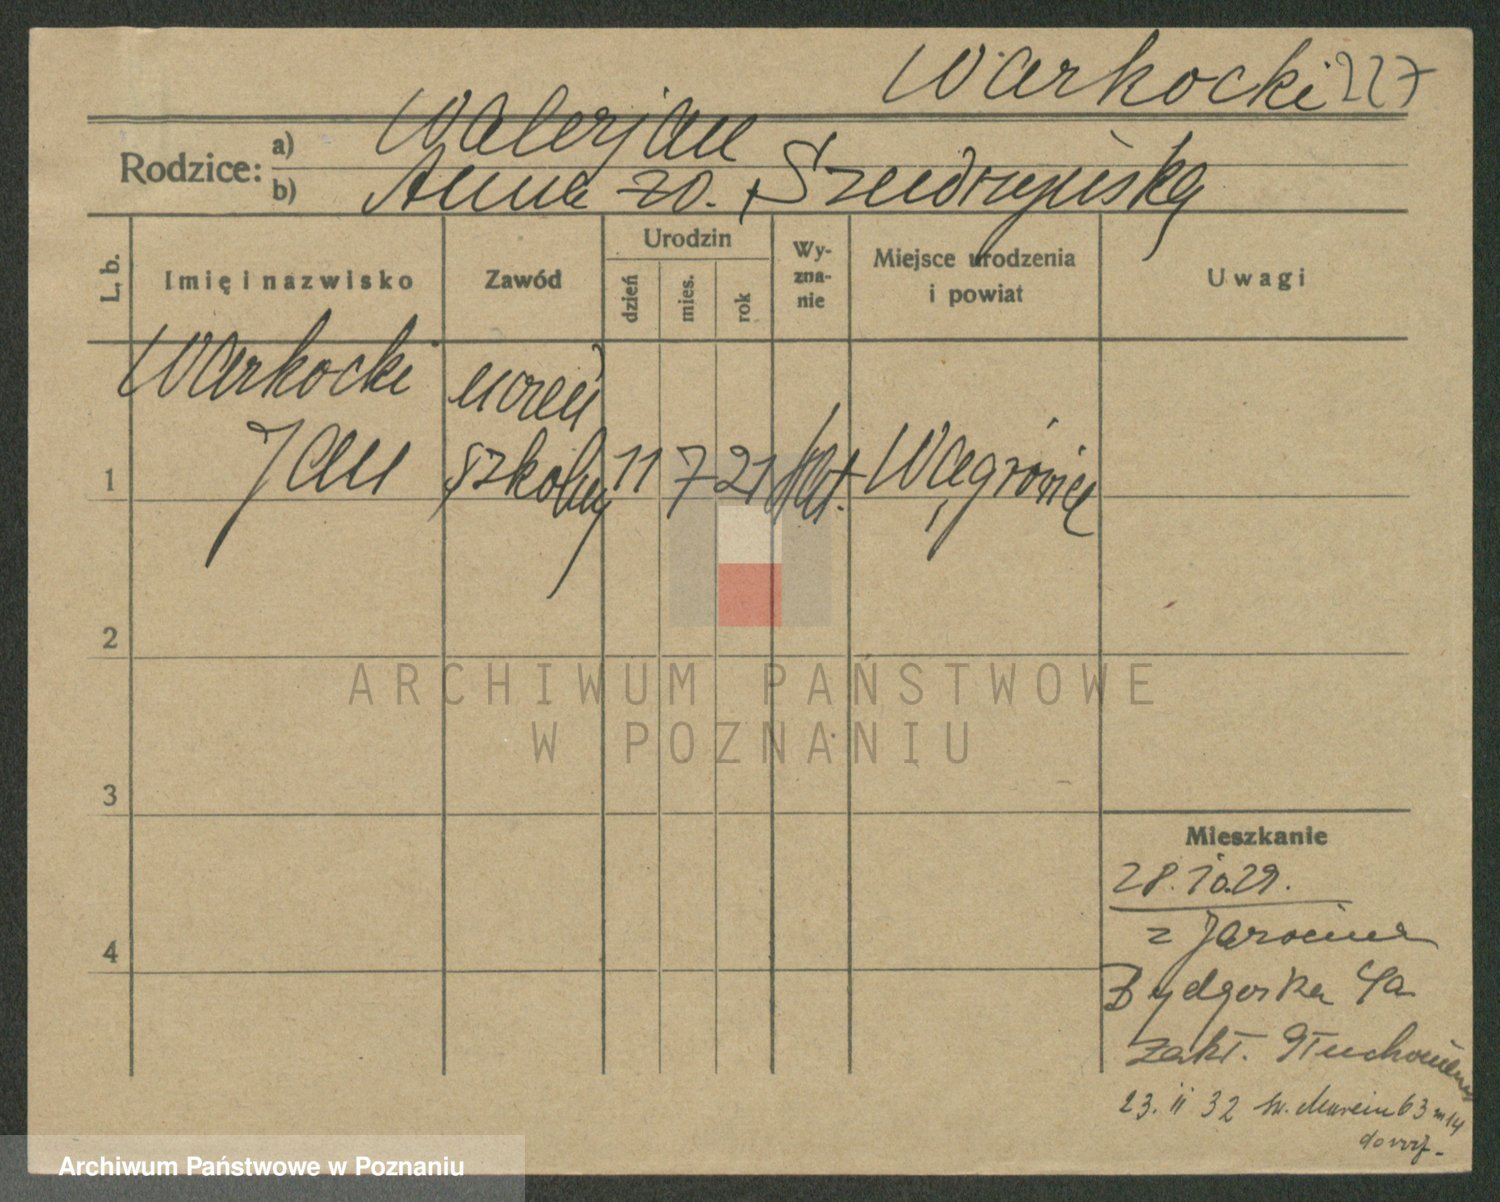 Warkocki 227
Rodzice:
a) Walerjan
b) Anna zd. Szudrzyńska
L. b.
Imię i nazwisko
Zawód
Urodzin
dzień
mies.
rok
Wy-
zna-
nie
Miejsce urodzenia
i powiat
Uwagi
Warkocki uczeń
1 Jan szkolny 11 7 21 kat. Wągrówiec
2
3
4
Mieszkanie
28.10.29.
z Jarocina
Bydgoska 4a
zakł. Głuchoniem
23. II 32 św. Marcin 63 m 14
ARCHIWUM PAŃSTWOWE
W POZNANIU
Archiwum Państwowe w Poznaniu